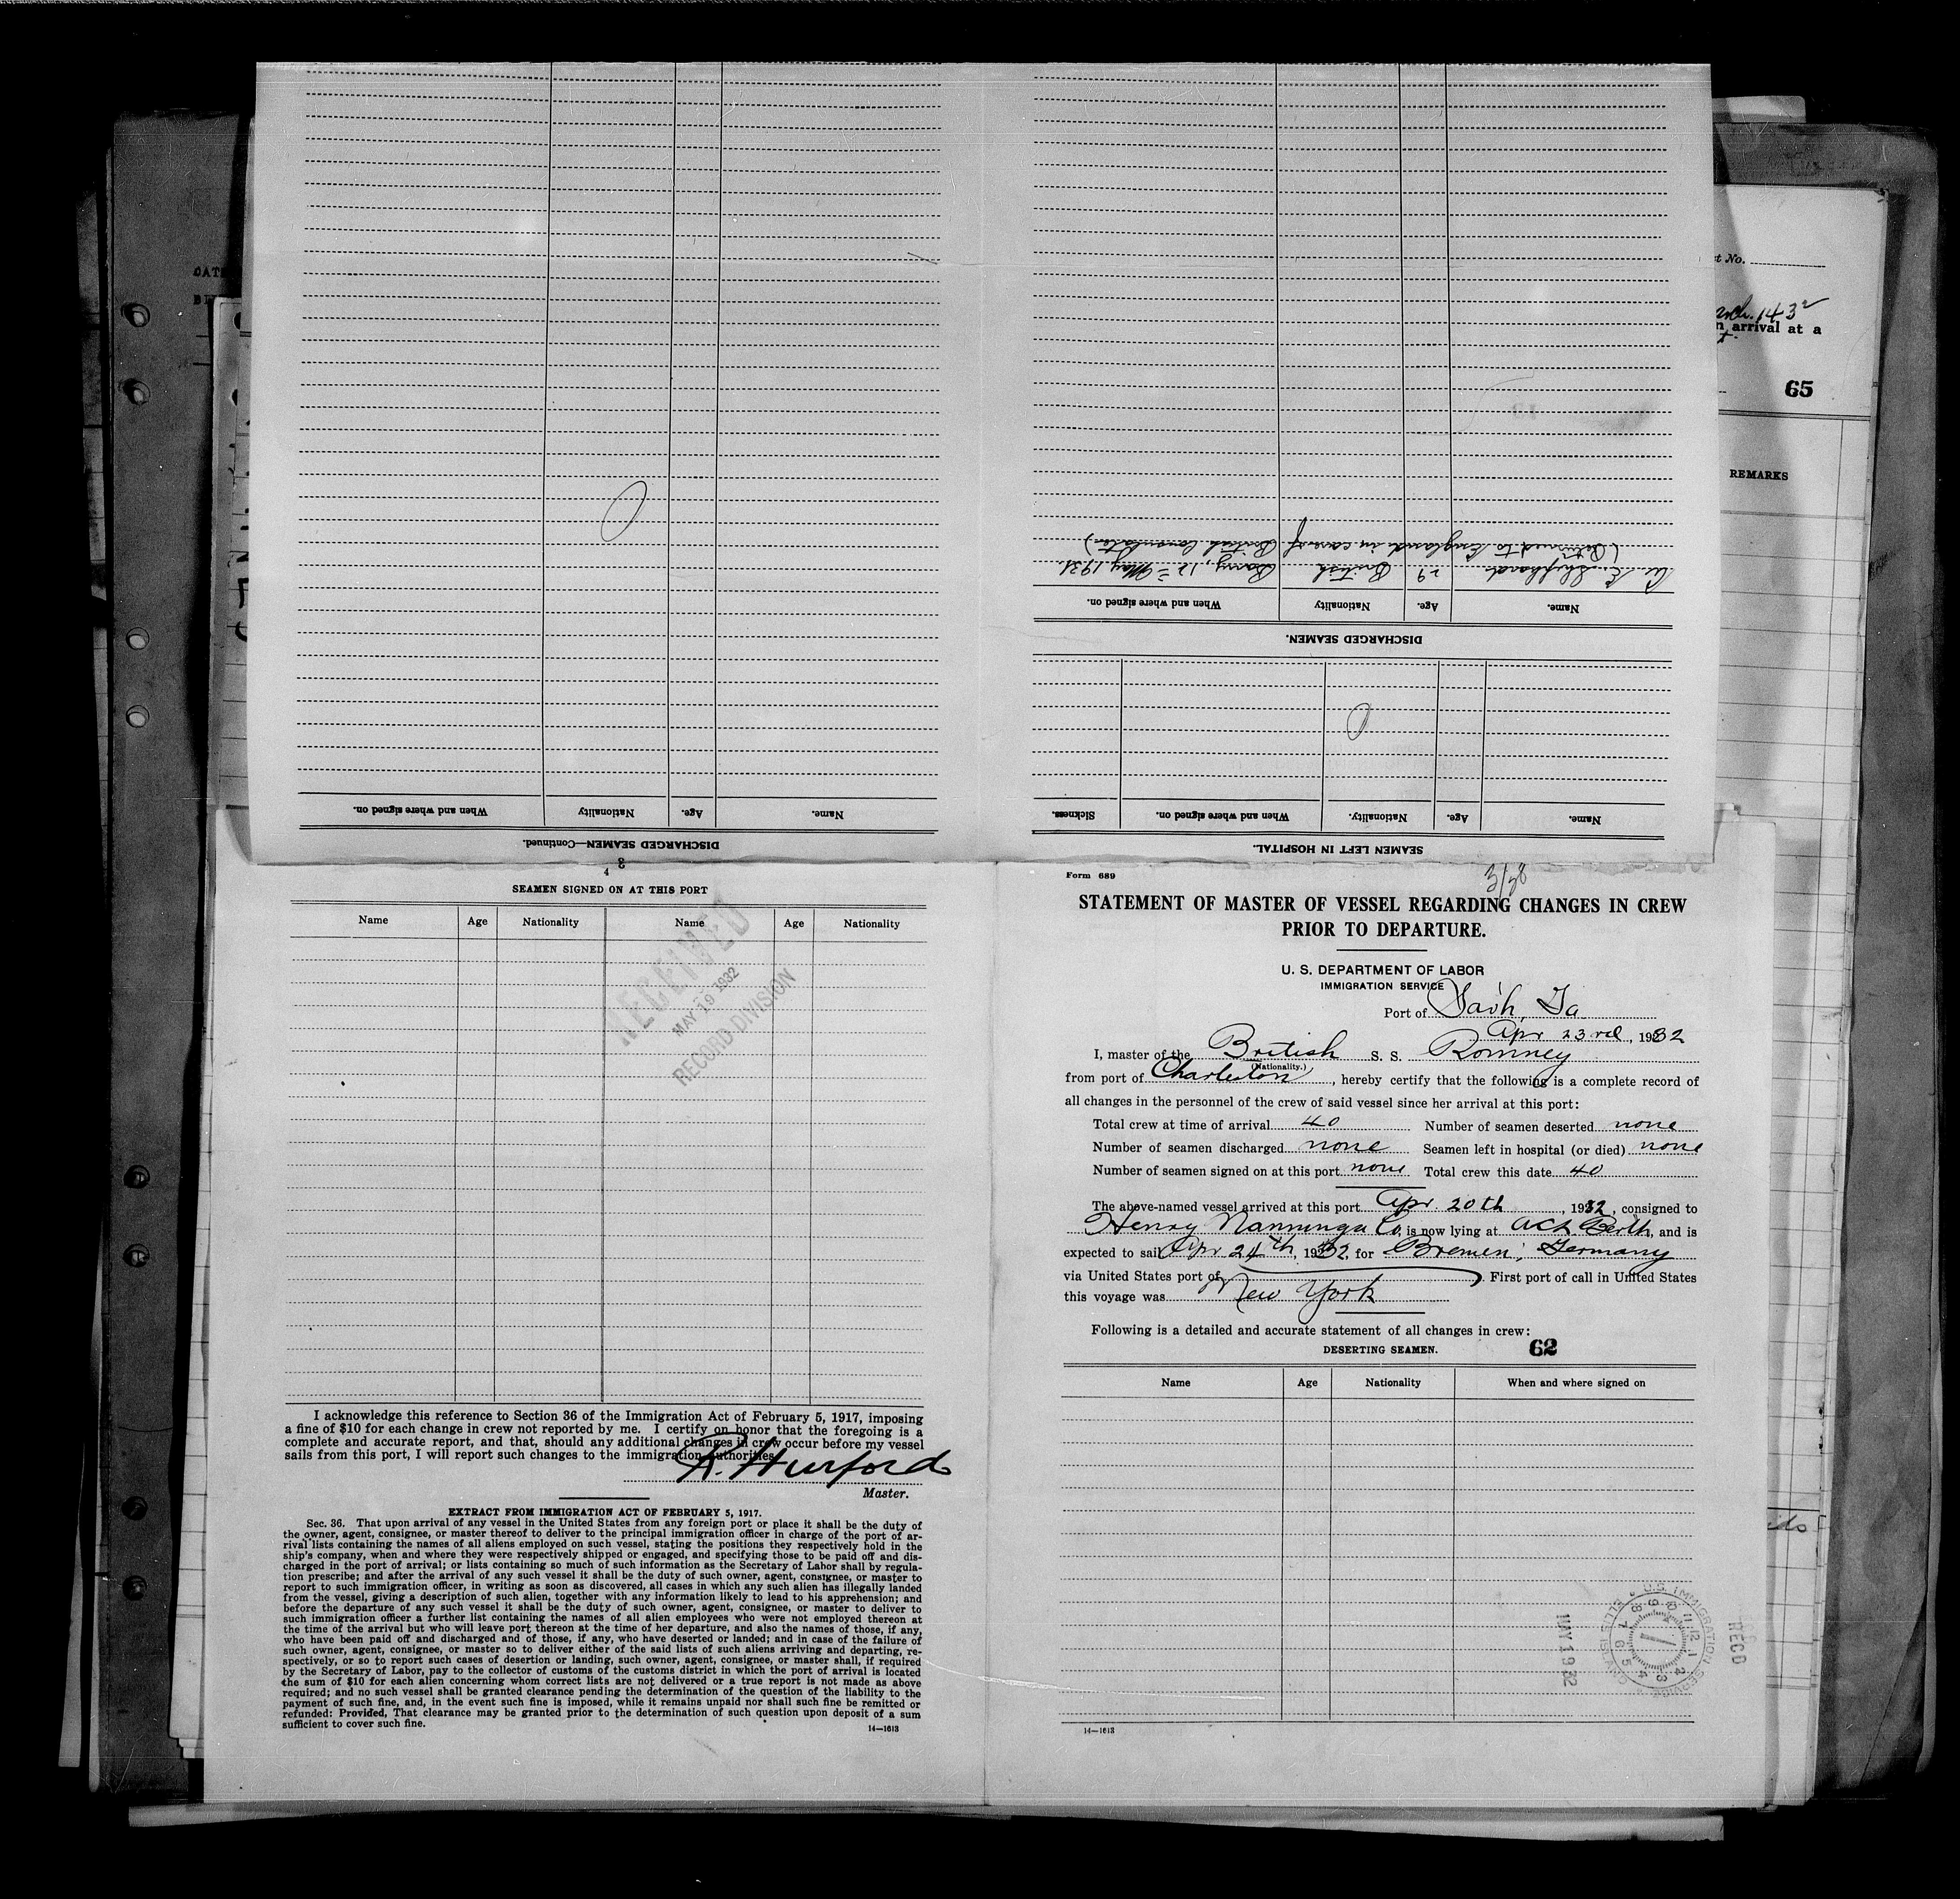 DISCHARGED SEAMEN—Continued.
Name. Age. Nationality When and where signed on.
3
SEAMEN LEFT IN HOSPITAL.
Name. Age. Nationality. When and where signed on. Sickness.
DISCHARGED SEAMEN.
Name. Age. Nationality When and where signed on.
Shephard 29 British Barry, 12 May 1931
(Returned to England in care of British Consulate)
t No.
arrival at a
65
REMARKS
4
SEAMEN SIGNED ON AT THIS PORT
Name Age Nationality Name Age Nationality
RECEIVED
MAY 19 1932
RECORD DIVISION
I acknowledge this reference to Section 36 of the Immigration Act of February 5, 1917, imposing
a fine of $10 for each change in crew not reported by me. I certify on honor that the foregoing is a
complete and accurate report, and that, should any additional changes in crew occur before my vessel
sails from this port, I will report such changes to the immigration authorities.
R. Hurford
Master.
EXTRACT FROM IMMIGRATION ACT OF FEBRUARY 5, 1917.
Sec. 36. That upon arrival of any vessel in the United States from any foreign port or place it shall be the duty of
the owner, agent, consignee, or master thereof to deliver to the principal immigration officer in charge of the port of ar-
rival lists containing the names of all aliens employed on such vessel, stating the positions they respectively hold in the
ship's company, when and where they were respectively shipped or engaged, and specifying those to be paid off and dis-
charged in the port of arrival; or lists containing so much of such information as the Secretary of Labor shall by regula-
tion prescribe; and after the arrival of any such vessel it shall be the duty of such owner, agent, consignee, or master to
report to such immigration officer, in writing as soon as discovered, all cases in which any such alien has illegally landed
from the vessel, giving a description of such alien, together with any information likely to lead to his apprehension; and
before the departure of any such vessel it shall be the duty of such owner, agent, consignee, or master to deliver to
such immigration officer a further list containing the names of all alien employees who were not employed thereon at
the time of the arrival but who will leave port thereon at the time of her departure, and also the names of those, if any,
who have been paid off and discharged and of those, if any, who have deserted or landed; and in case of the failure of
such owner, agent, consignee, or master so to deliver either of the said lists of such aliens arriving and departing, re-
spectively, or so to report such cases of desertion or landing, such owner, agent, consignee, or master shall, if required
by the Secretary of Labor, pay to the collector of customs of the customs district in which the port of arrival is located
the sum of $10 for each alien concerning whom correct lists are not delivered or a true report is not made as above
required; and no such vessel shall be granted clearance pending the determination of the question of the liability to the
payment of such fine, and, in the event such fine is imposed, while it remains unpaid nor shall such fine be remitted or
refunded: Provided, That clearance may be granted prior to the determination of such question upon deposit of a sum
sufficient to cover such fine.
14—1613
Form 689
3/38
STATEMENT OF MASTER OF VESSEL REGARDING CHANGES IN CREW
PRIOR TO DEPARTURE.
U. S. DEPARTMENT OF LABOR
IMMIGRATION SERVICE
Port of Savh, Ga
Apr 23rd, 1932
I, master of the British S. S. Romney
(Nationality.)
from port of Charleston, hereby certify that the following is a complete record of
all changes in the personnel of the crew of said vessel since her arrival at this port:
Total crew at time of arrival 40 Number of seamen deserted none
Number of seamen discharged none Seamen left in hospital (or died) none
Number of seamen signed on at this port none Total crew this date 40
The above-named vessel arrived at this port Apr. 20th, 1932, consigned to
Henry Nanninga Co is now lying at ACL Berth, and is
expected to sail Apr 24th, 1932, for Bremen, Germany
via United States port of First port of call in United States
this voyage was New York
Following is a detailed and accurate statement of all changes in crew:
DESERTING SEAMEN. 62
Name Age Nationality When and where signed on
U.S. IMMIGRATION SERVICE
ELLIS ISLAND
MAY 19 32
REC'D
14—1613